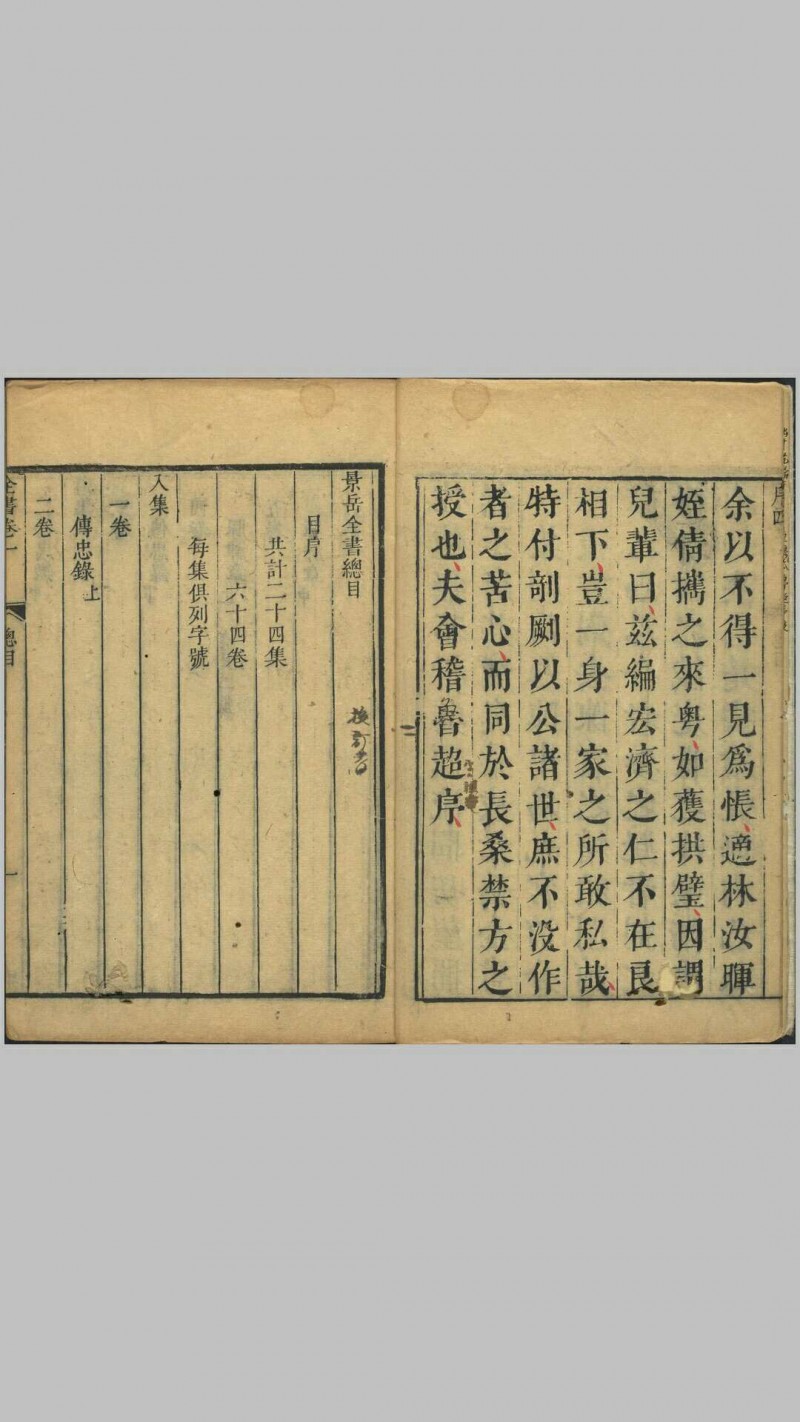 余以不得一見爲悵適林汝暉
姪倩攜之來粵如獲拱璧因謂
兒輩曰兹編宏濟之仁不在艮
相下豈一身一家之所敢私哉
特付剞劂以公諸世庶不没作
者之苦心而同於長桑禁方之
授也夫會稽魯超序
景岳全書總目
目序
共計二十四集
六十四卷
每集俱列字號
入集
一卷
傳忠錄上
二卷
全書卷一 總目 一